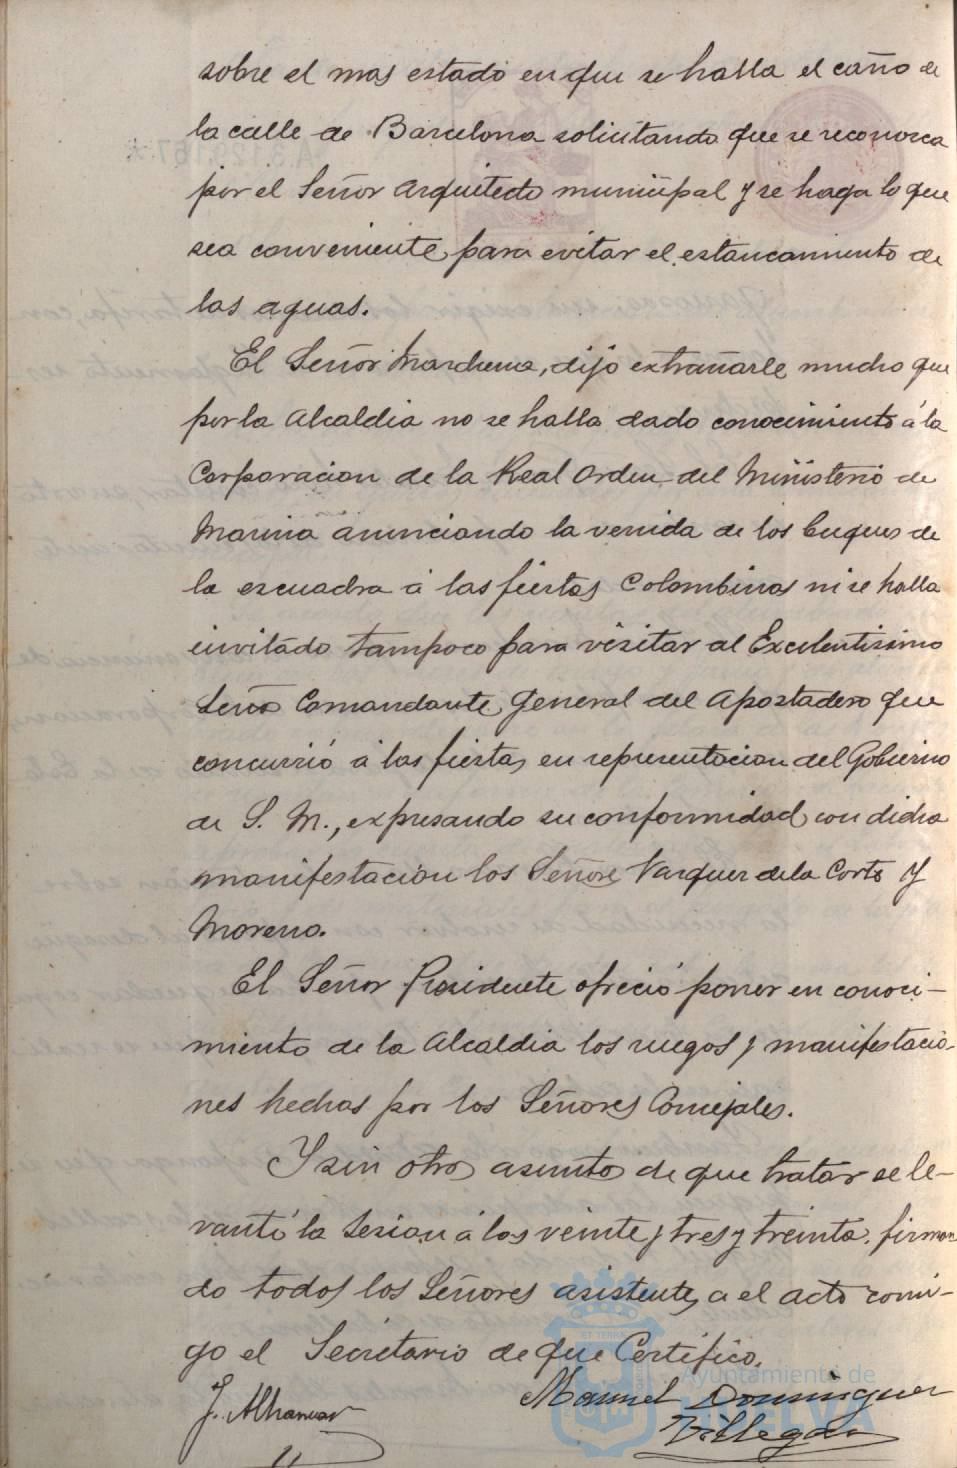 sobre el mas estado en que se halla el caño de
la calle de Barcelona solicitando que se reconosca
por el Señor Arquitecto municipal y se haga lo que
sea conveniente para evitar el estancamiento de
las aguas.
El Señor Marchena, dijo extrañarle mucho que
por la Alcaldia no se halla dado conocimiento á la
Corporacion de la Real Orden del Ministerio de
Marina anunciando la venida de los buques de
la escuadra á las fiestas Colombinas ni se halla
invitado tampoco para visitar al Excelentisimo
Señor Comandante General del Apostadero que
concurrió á las fiestas en representacion del Gobierno
de S. M., expresando su conformidad con dicha
manifestacion los Señores Vazquez de la Corte y
Moreno.
El Señor Presidente ofreció poner en conoci-
miento de la Alcaldia los ruegos y manifestacio-
nes hechas por los Señores Concejales.
Y sin otro asunto de que tratar se le-
vantó la Sesion á las veinte y tres y treinta, firman
do todos los Señores asistentes a el acto conmi-
go el Secretario de que Certifico.
Manuel Dominguez
J.
Villegas
Ayuntamiento de
HUELVA